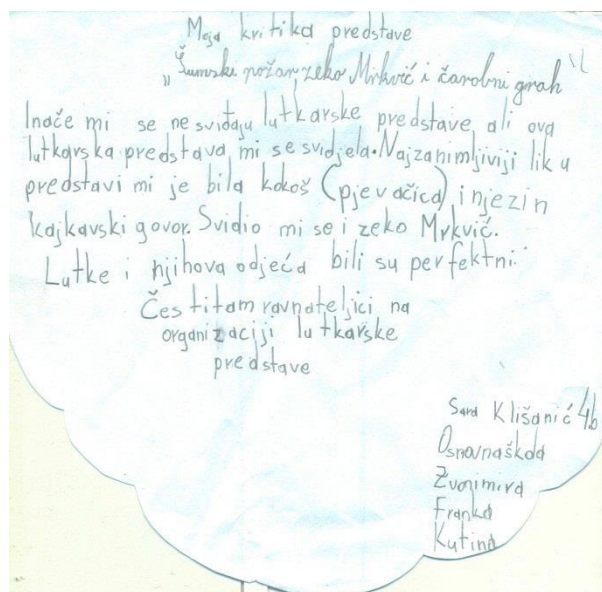 Moja kritika predstave
„Šumski požar, zeko Mrkvić i čarobni grah"
Inače mi se ne sviđaju lutkarske predstave, ali ova
lutkarska predstava mi se svidjela. Najzanimljiviji lik u
predstavi mi je bila kokoš (pjevačica) i njezin
kajkavski govor. Svidio mi se i zeko Mrkvić.
Lutke i njihova odjeća bili su perfektni.
Čestitam ravnateljici na
organizaciji lutkarske
predstave
Sara Klišanić 4.b
Osnovna škola
Zvonimira
Franka
Kutina